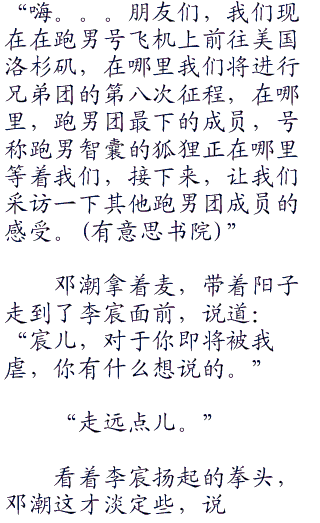 “嗨。。。朋友们，我们现
在在跑男号飞机上前往美国
洛杉矶，在哪里我们将进行
兄弟团的第八次征程，在哪
里，跑男团最下的成员，号
称跑男智囊的狐狸正在哪里
等着我们，接下来，让我们
采访一下其他跑男团成员的
感受。(有意思书院)”
邓潮拿着麦，带着阳子
走到了李宸面前，说道：
“宸儿，对于你即将被我
虐，你有什么想说的。”
“走远点儿。”
看着李宸扬起的拳头，
邓潮这才淡定些，说